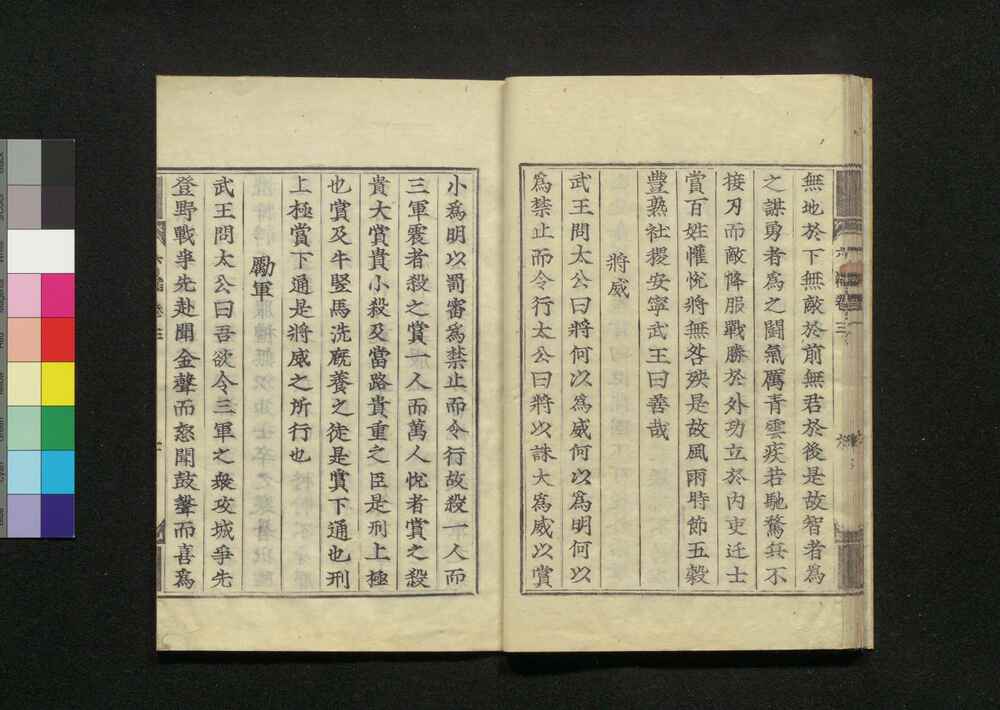 無地於下無敵於前無君於後是故智者爲
之謀勇者爲之鬪氣厲青雲疾若馳騖兵不
接刃而敵降服戰勝於外功立於內吏迁士
賞百姓懽悅將無咎殃是故風雨時節五穀
豊熟社稷安寧武王曰善哉
將威
武王問太公曰將何以爲威何以爲明何以
爲禁止而令行太公曰將以誅大爲威以賞
小爲明以罰審爲禁止而令行故殺一人而
三軍震者殺之賞一人而萬人悅者賞之殺
貴大賞貴小殺及當路貴重之臣是刑上極
也賞及牛竪馬洗廐養之徒是賞下通也刑
上極賞下通是將威之所行也
勵軍
武王問太公曰吾欲令三軍之衆攻城爭先
登野戰爭先赴聞金聲而怒聞鼓聲而喜爲